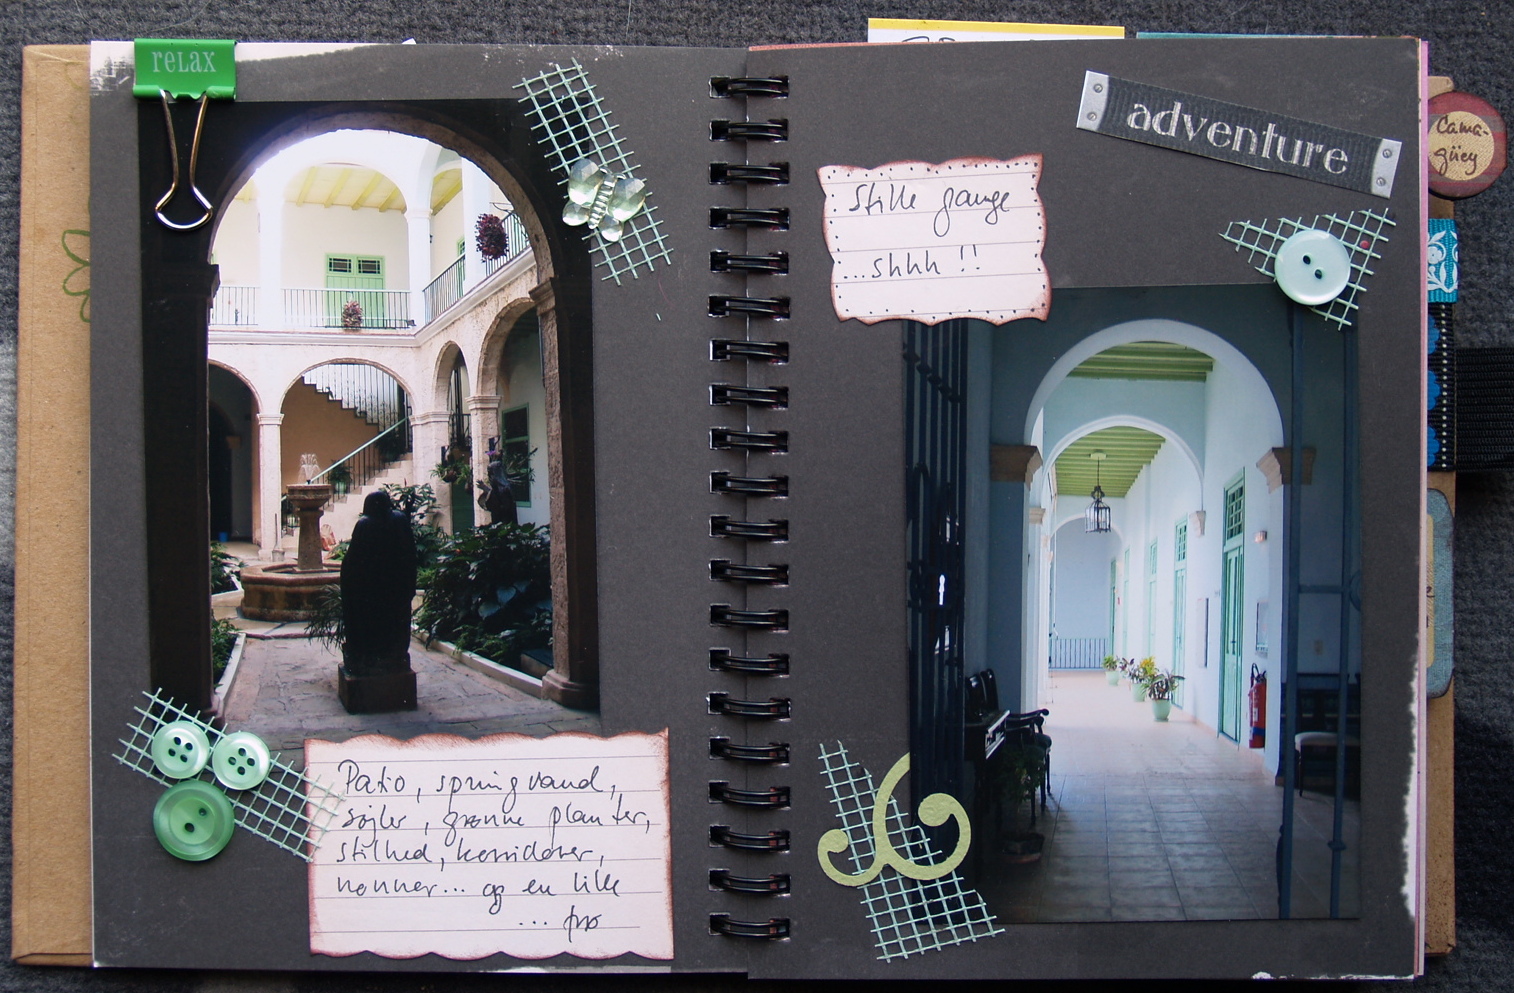 relax
Patio, springvand,
søjler, grønne planter,
stilhed, korridorer,
nonner... og en lille
...
adventure
Stille gange
...shhh !!
Cama-
güey